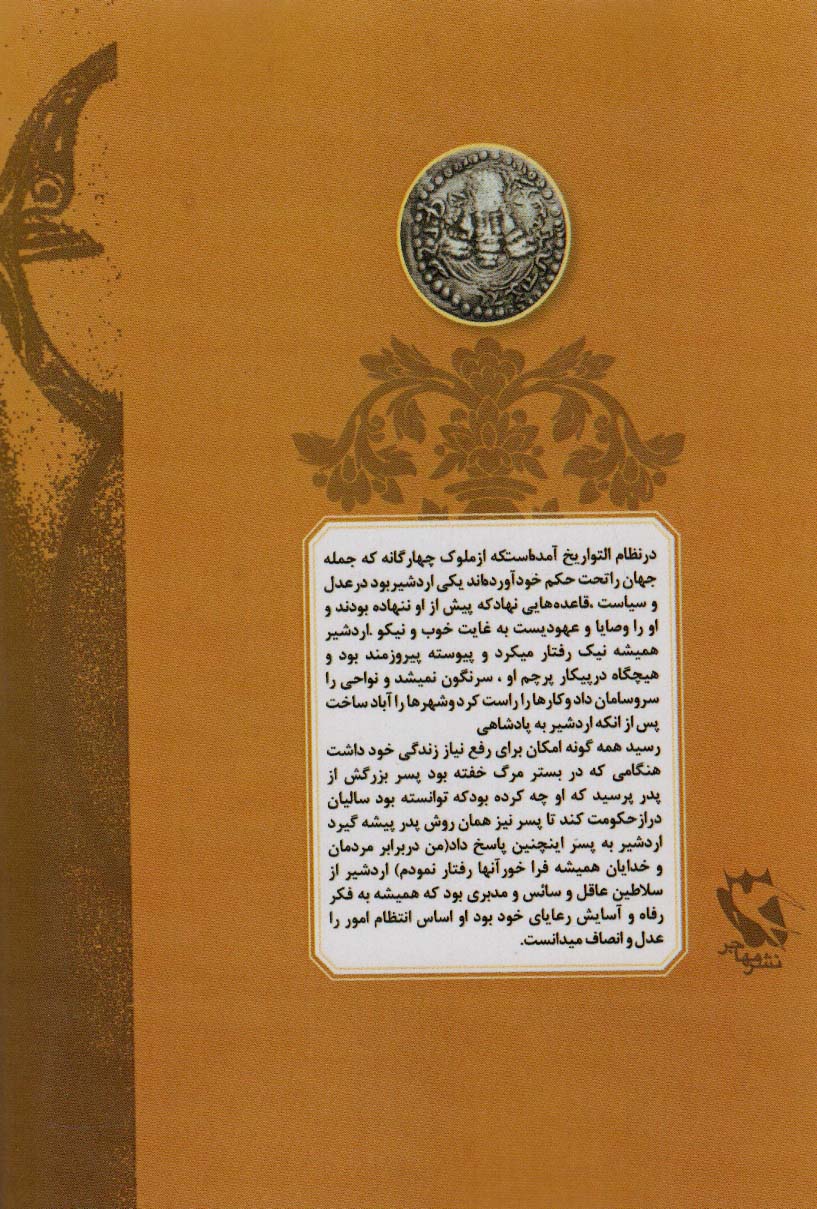 در نظام التواریخ آمده‌است‌که از ملوک چهارگانه که جمله
جهان را تحت حکم خود آورده‌اند یکی اردشیر بود در عدل
و سیاست ،قاعده‌هایی نهاد که پیش از او ننهاده بودند و
او را وصایا و عهودیست به غایت خوب و نیکو .اردشیر
همیشه نیک رفتار میکرد و پیوسته پیروزمند بود و
هیچگاه در پیکار پرچم او ، سرنگون نمیشد و نواحی را
سروسامان داد و کارها را راست کرد و شهرها را آباد ساخت
پس از انکه اردشیر به پادشاهی
رسید همه گونه امکان برای رفع نیاز زندگی خود داشت
هنگامی که در بستر مرگ خفته بود پسر بزرگش از
پدر پرسید که او چه کرده بودکه توانسته بود سالیان
درازحکومت کند تا پسر نیز همان روش پدر پیشه گیرد
اردشیر به پسر اینچنین پاسخ داد(من دربرابر مردمان
و خدایان همیشه فرا خور آنها رفتار نمودم) اردشیر از
سلاطین عاقل و سائس و مدبری بود که همیشه به فکر
رفاه و آسایش رعایای خود بود او اساس انتظام امور را
عدل و انصاف میدانست.
نشر مهاجر